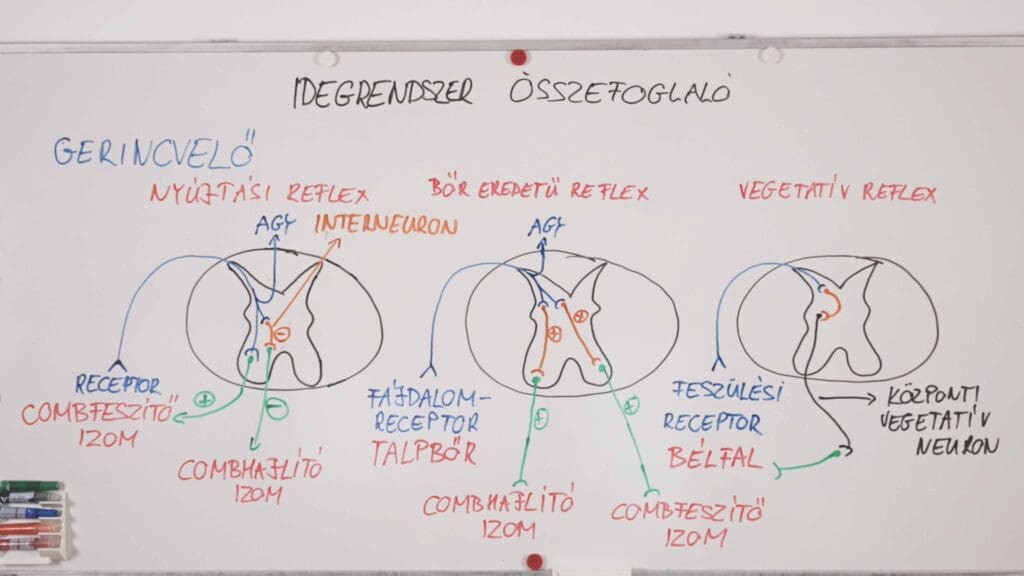 IDEGRENDSZER ÖSSZEFOGLALÓ
GERINCVELŐ
NYÚJTÁSI REFLEX
AGY
INTERNEURON
⊖
RECEPTOR
COMBFESZÍTŐ
IZOM
⊕
⊖
COMBHAJLÍTÓ
IZOM
BŐR EREDETŰ REFLEX
AGY
⊕
⊕
FÁJDALOM-
RECEPTOR
TALPBŐR
⊕
⊕
COMBHAJLÍTÓ
IZOM
COMBFESZÍTŐ
IZOM
VEGETATÍV REFLEX
FESZÜLÉSI
RECEPTOR
BÉLFAL
KÖZPONTI
VEGETATÍV
NEURON